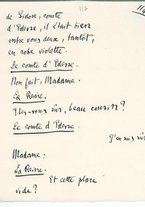 117
114
de Sidon, comte
d'Edesse, il était assis
entre vous deux, tantôt,
en robe violette.
Le comte d'Edesse.
Non fait, Madame.
La Reine.
Êtes-vous sûr, beau cousin ?
Le comte d'Edesse.
J'en suis sûr
Madame.
La Reine.
Et cette place
vide ?